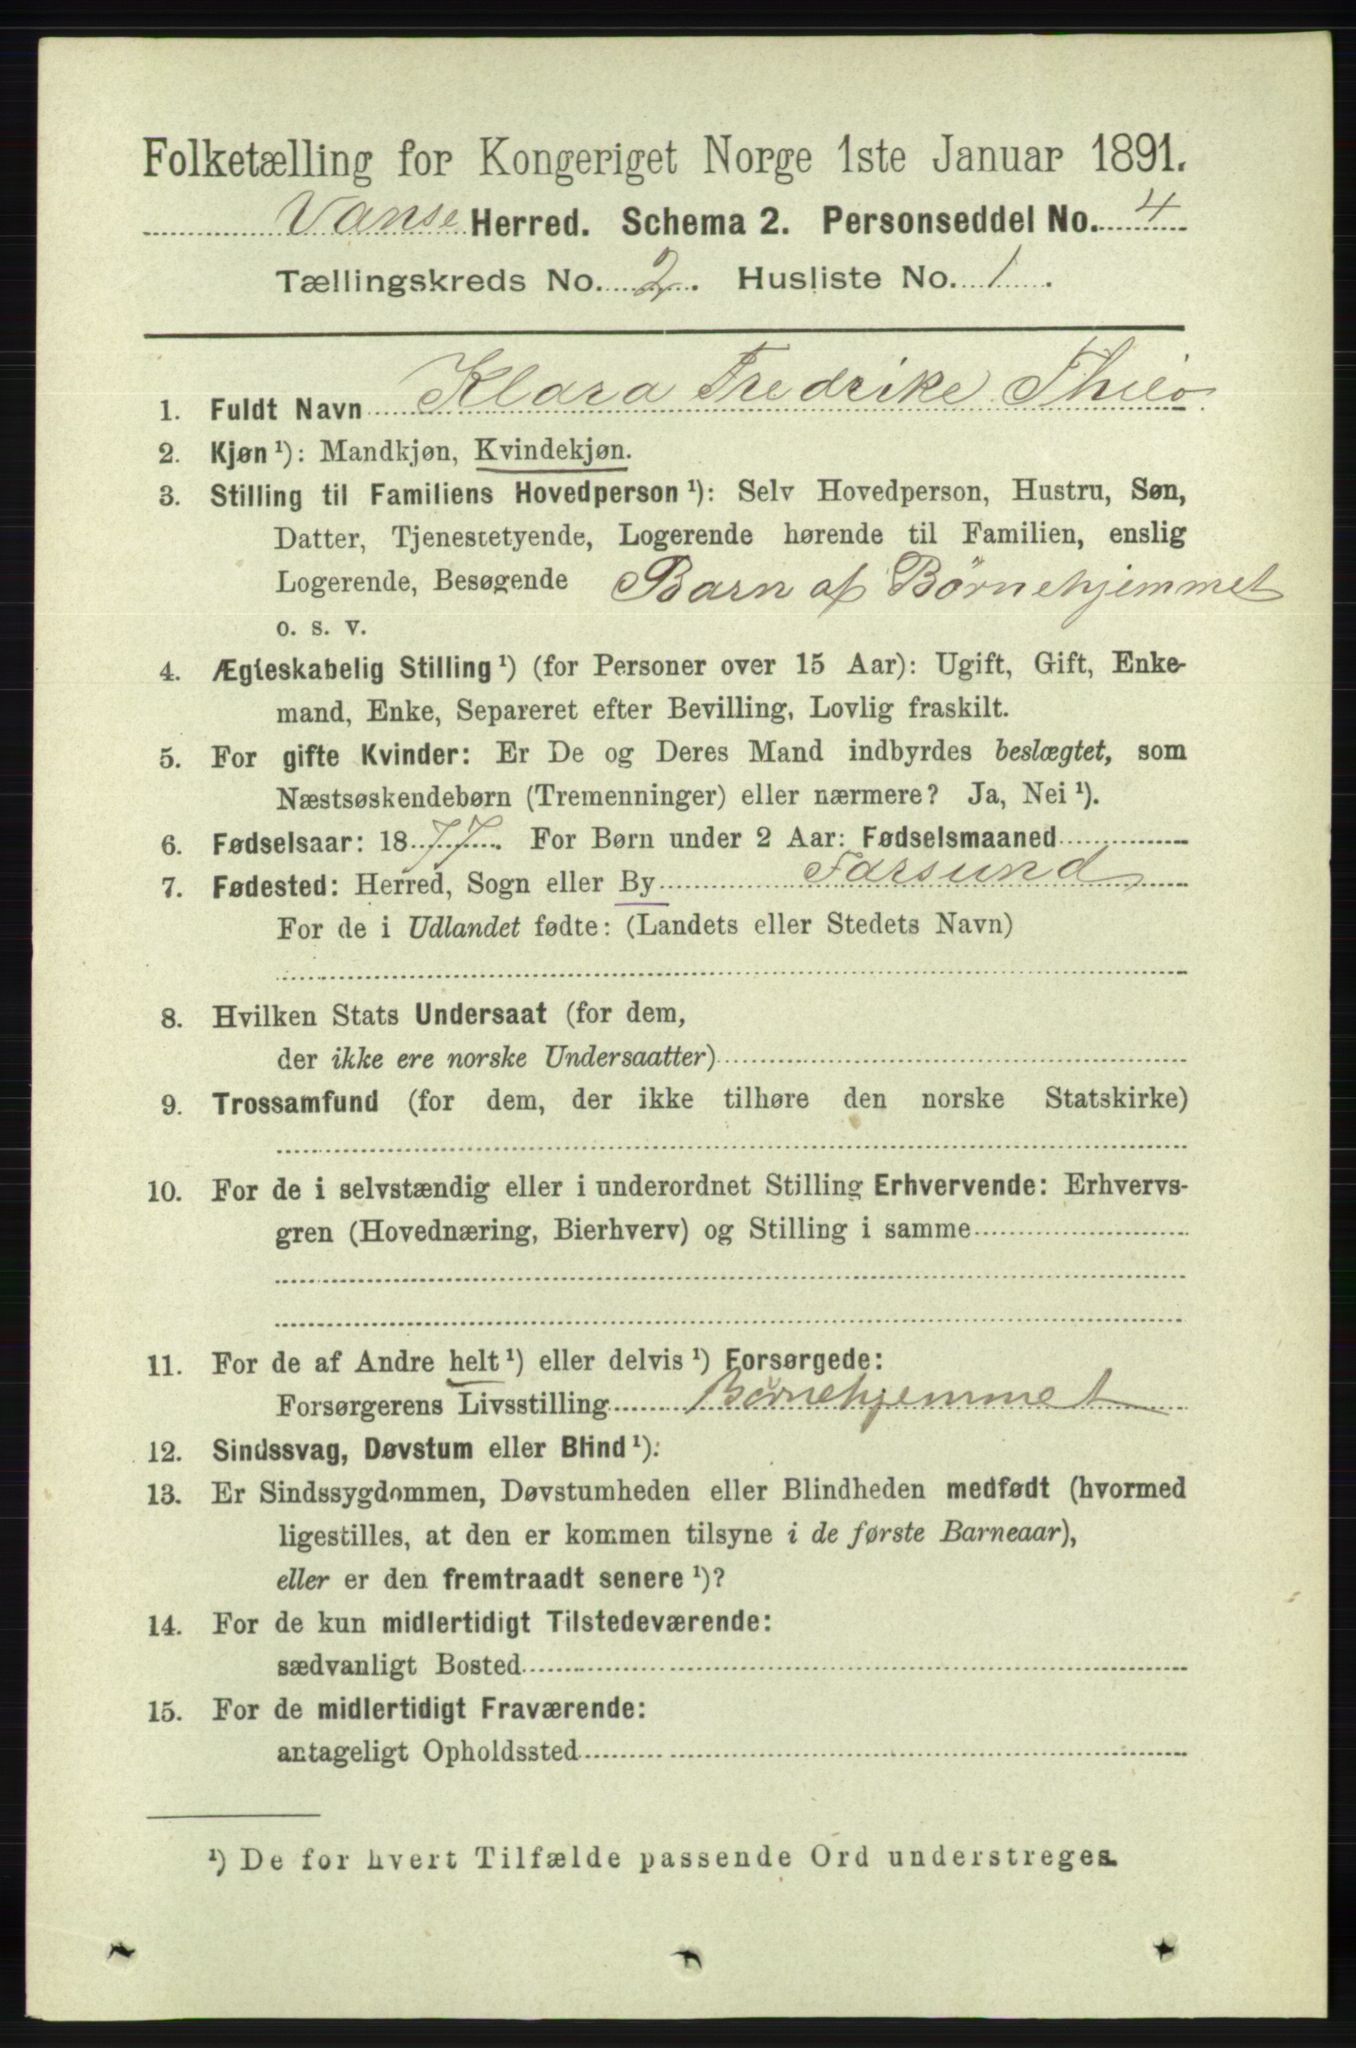 Folketælling for Kongeriget Norge 1ste Januar 1891.
Vanse Herred. Schema 2. Personseddel No. 4
Tællingskreds No. 2. Husliste No. 1.
1. Fuldt Navn Klara Fredrike Thilo
2. Kjøn ¹): Mandkjøn, Kvindekjøn.
3. Stilling til Familiens Hovedperson ¹): Selv Hovedperson, Hustru, Søn,
Datter, Tjenestetyende, Logerende hørende til Familien, enslig
Logerende, Besøgende Barn af Børnehjemmet
o. s. v.
4. Ægteskabelig Stilling ¹) (for Personer over 15 Aar): Ugift, Gift, Enke-
mand, Enke, Separeret efter Bevilling, Lovlig fraskilt.
5. For gifte Kvinder: Er De og Deres Mand indbyrdes beslægtet, som
Næstsøskendebørn (Tremenninger) eller nærmere? Ja, Nei ¹).
6. Fødselsaar: 1877. For Børn under 2 Aar: Fødselsmaaned
7. Fødested: Herred, Sogn eller By Farsund
For de i Udlandet fødte: (Landets eller Stedets Navn)
8. Hvilken Stats Undersaat (for dem,
der ikke ere norske Undersaatter)
9. Trossamfund (for dem, der ikke tilhøre den norske Statskirke)
10. For de i selvstændig eller i underordnet Stilling Erhvervende: Erhvervs-
gren (Hovednæring, Bierhverv) og Stilling i samme
11. For de af Andre helt ¹) eller delvis ¹) Forsørgede:
Forsørgerens Livsstilling Børnehjemmet
12. Sindssvag, Døvstum eller Blind ¹):
13. Er Sindssygdommen, Døvstumheden eller Blindheden medfødt (hvormed
ligestilles, at den er kommen tilsyne i de første Barneaar),
eller er den fremtraadt senere ¹)?
14. For de kun midlertidigt Tilstedeværende:
sædvanligt Bosted
15. For de midlertidigt Fraværende:
antageligt Opholdssted
¹) De for hvert Tilfælde passende Ord understreges.